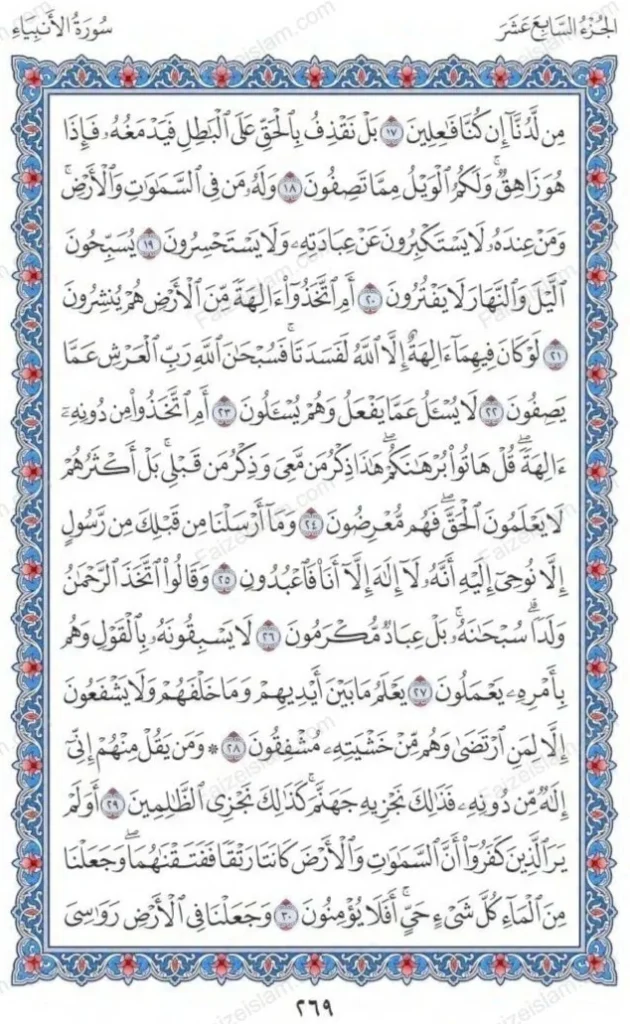 الجُزْءُ السَّابِعَ عَشَرَ سُورَةُ الأَنبِيَاءِ
مِن لَّدُنَّآ إِن كُنَّا فَـٰعِلِينَ ١٧ بَلْ نَقْذِفُ بِالْحَقِّ عَلَى الْبَـٰطِلِ فَيَدْمَغُهُۥ فَإِذَا
هُوَ زَاهِقٌ ۚ وَلَكُمُ الْوَيْلُ مِمَّا تَصِفُونَ ١٨ وَلَهُۥ مَن فِى السَّمَـٰوَٰتِ وَالْأَرْضِ ۚ
وَمَنْ عِندَهُۥ لَا يَسْتَكْبِرُونَ عَنْ عِبَادَتِهِۦ وَلَا يَسْتَحْسِرُونَ ١٩ يُسَبِّحُونَ
الَّيْلَ وَالنَّهَارَ لَا يَفْتُرُونَ ٢٠ أَمِ اتَّخَذُوٓا۟ ءَالِهَةً مِّنَ الْأَرْضِ هُمْ يُنشِرُونَ
٢١ لَوْ كَانَ فِيهِمَآ ءَالِهَةٌ إِلَّا اللَّهُ لَفَسَدَتَا ۚ فَسُبْحَـٰنَ اللَّهِ رَبِّ الْعَرْشِ عَمَّا
يَصِفُونَ ٢٢ لَا يُسْـَٔلُ عَمَّا يَفْعَلُ وَهُمْ يُسْـَٔلُونَ ٢٣ أَمِ اتَّخَذُوا۟ مِن دُونِهِۦٓ
ءَالِهَةً ۖ قُلْ هَاتُوا۟ بُرْهَـٰنَكُمْ ۖ هَـٰذَا ذِكْرُ مَن مَّعِىَ وَذِكْرُ مَن قَبْلِى ۗ بَلْ أَكْثَرُهُمْ
لَا يَعْلَمُونَ الْحَقَّ ۖ فَهُم مُّعْرِضُونَ ٢٤ وَمَآ أَرْسَلْنَا مِن قَبْلِكَ مِن رَّسُولٍ
إِلَّا نُوحِىٓ إِلَيْهِ أَنَّهُۥ لَآ إِلَـٰهَ إِلَّآ أَنَا۠ فَاعْبُدُونِ ٢٥ وَقَالُوا۟ اتَّخَذَ الرَّحْمَـٰنُ
وَلَدًا ۗ سُبْحَـٰنَهُۥ ۚ بَلْ عِبَادٌ مُّكْرَمُونَ ٢٦ لَا يَسْبِقُونَهُۥ بِالْقَوْلِ وَهُم
بِأَمْرِهِۦ يَعْمَلُونَ ٢٧ يَعْلَمُ مَا بَيْنَ أَيْدِيهِمْ وَمَا خَلْفَهُمْ وَلَا يَشْفَعُونَ
إِلَّا لِمَنِ ارْتَضَىٰ وَهُم مِّنْ خَشْيَتِهِۦ مُشْفِقُونَ ٢٨ ۞ وَمَن يَقُلْ مِنْهُمْ إِنِّىٓ
إِلَـٰهٌ مِّن دُونِهِۦ فَذَٰلِكَ نَجْزِيهِ جَهَنَّمَ ۚ كَذَٰلِكَ نَجْزِى الظَّـٰلِمِينَ ٢٩ أَوَلَمْ
يَرَ الَّذِينَ كَفَرُوٓا۟ أَنَّ السَّمَـٰوَٰتِ وَالْأَرْضَ كَانَتَا رَتْقًا فَفَتَقْنَـٰهُمَا ۖ وَجَعَلْنَا
مِنَ الْمَآءِ كُلَّ شَىْءٍ حَىٍّ ۖ أَفَلَا يُؤْمِنُونَ ٣٠ وَجَعَلْنَا فِى الْأَرْضِ رَوَٰسِىَ
٢٦٩
Faizeislam.com